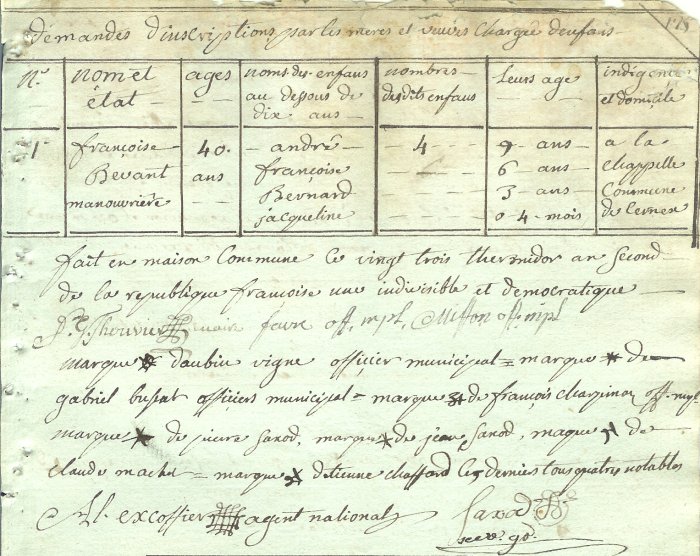 demandes d'inscriptions par les meres et veuves chargée d'enfans
178
N.º | nom et état | ages | noms des enfans au dessous de dix ans | nombres des dits enfans | Leurs age | indigence et domicile
1 | françoise | 40. | andré | 4 | 9 ans | a la
Bevant | ans | françoise | 6 ans | chappelle
manouvrière | Bernard | 3 ans | Commune
jacqueline | 0 4 mois | de Cernex
fait en maison Commune Ce vingt trois thermidor an second
de la republique françoise une indivisible et democratique
Thouvier maire favre off. mpl. off. mpl
marque d'aubin vigne officier municipal = marque de
gabriel officiers municipal = marque de françois off. mpl
marque de pierre saxod, marque de jean saxod, maque de
claude machet = marque d'etienne chaffard Ces derniers tous quatres notables
excoffier agent national Saxod
secr. gd.